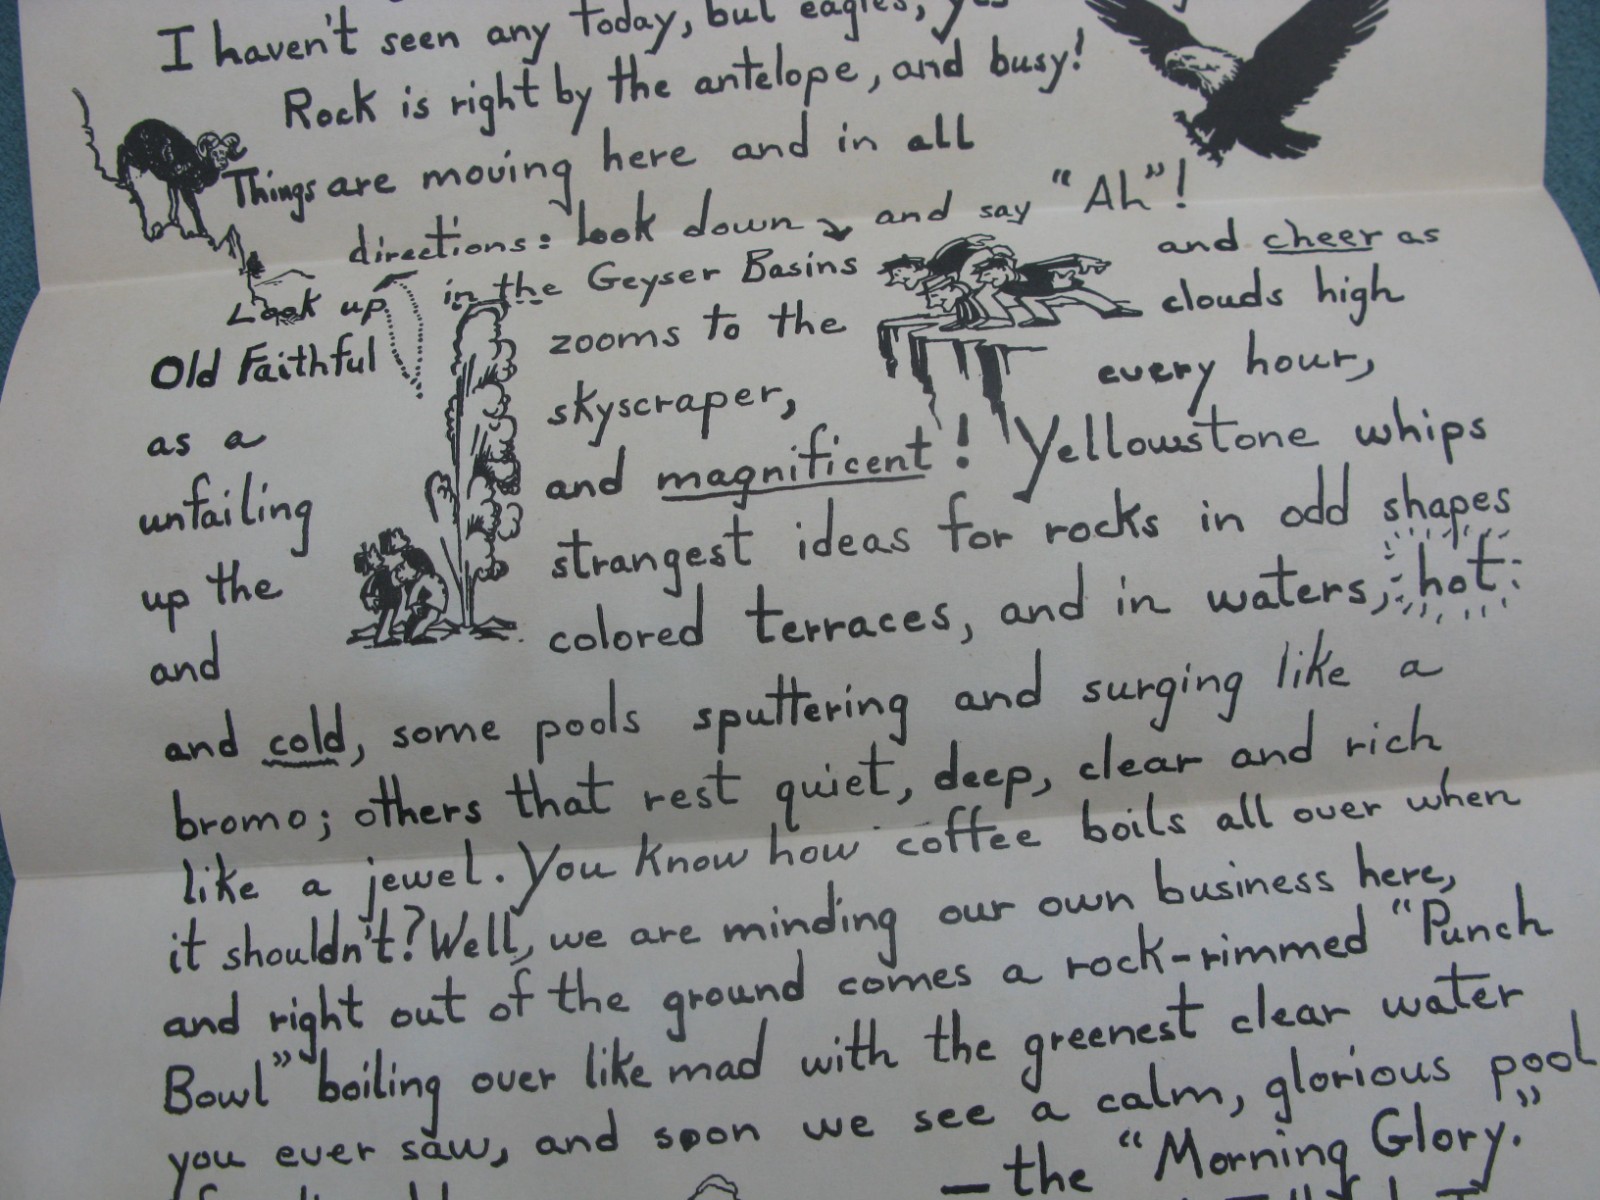 I haven't seen any today, but eagles, yes
Rock is right by the antelope, and busy!
Things are moving here and in all
directions: look down and say "Ah"!
in the Geyser Basins and cheer as
Look up zooms to the clouds high
Old Faithful skyscraper, every hour,
as a and magnificent! Yellowstone whips
unfailing strangest ideas for rocks in odd shapes
up the colored terraces, and in waters, hot
and
and cold, some pools sputtering and surging like a
bromo; others that rest quiet, deep, clear and rich
like a jewel. You know how coffee boils all over when
it shouldn't? Well, we are minding our own business here,
and right out of the ground comes a rock-rimmed "Punch
Bowl" boiling over like mad with the greenest clear water
you ever saw, and soon we see a calm, glorious pool
— the "Morning Glory."